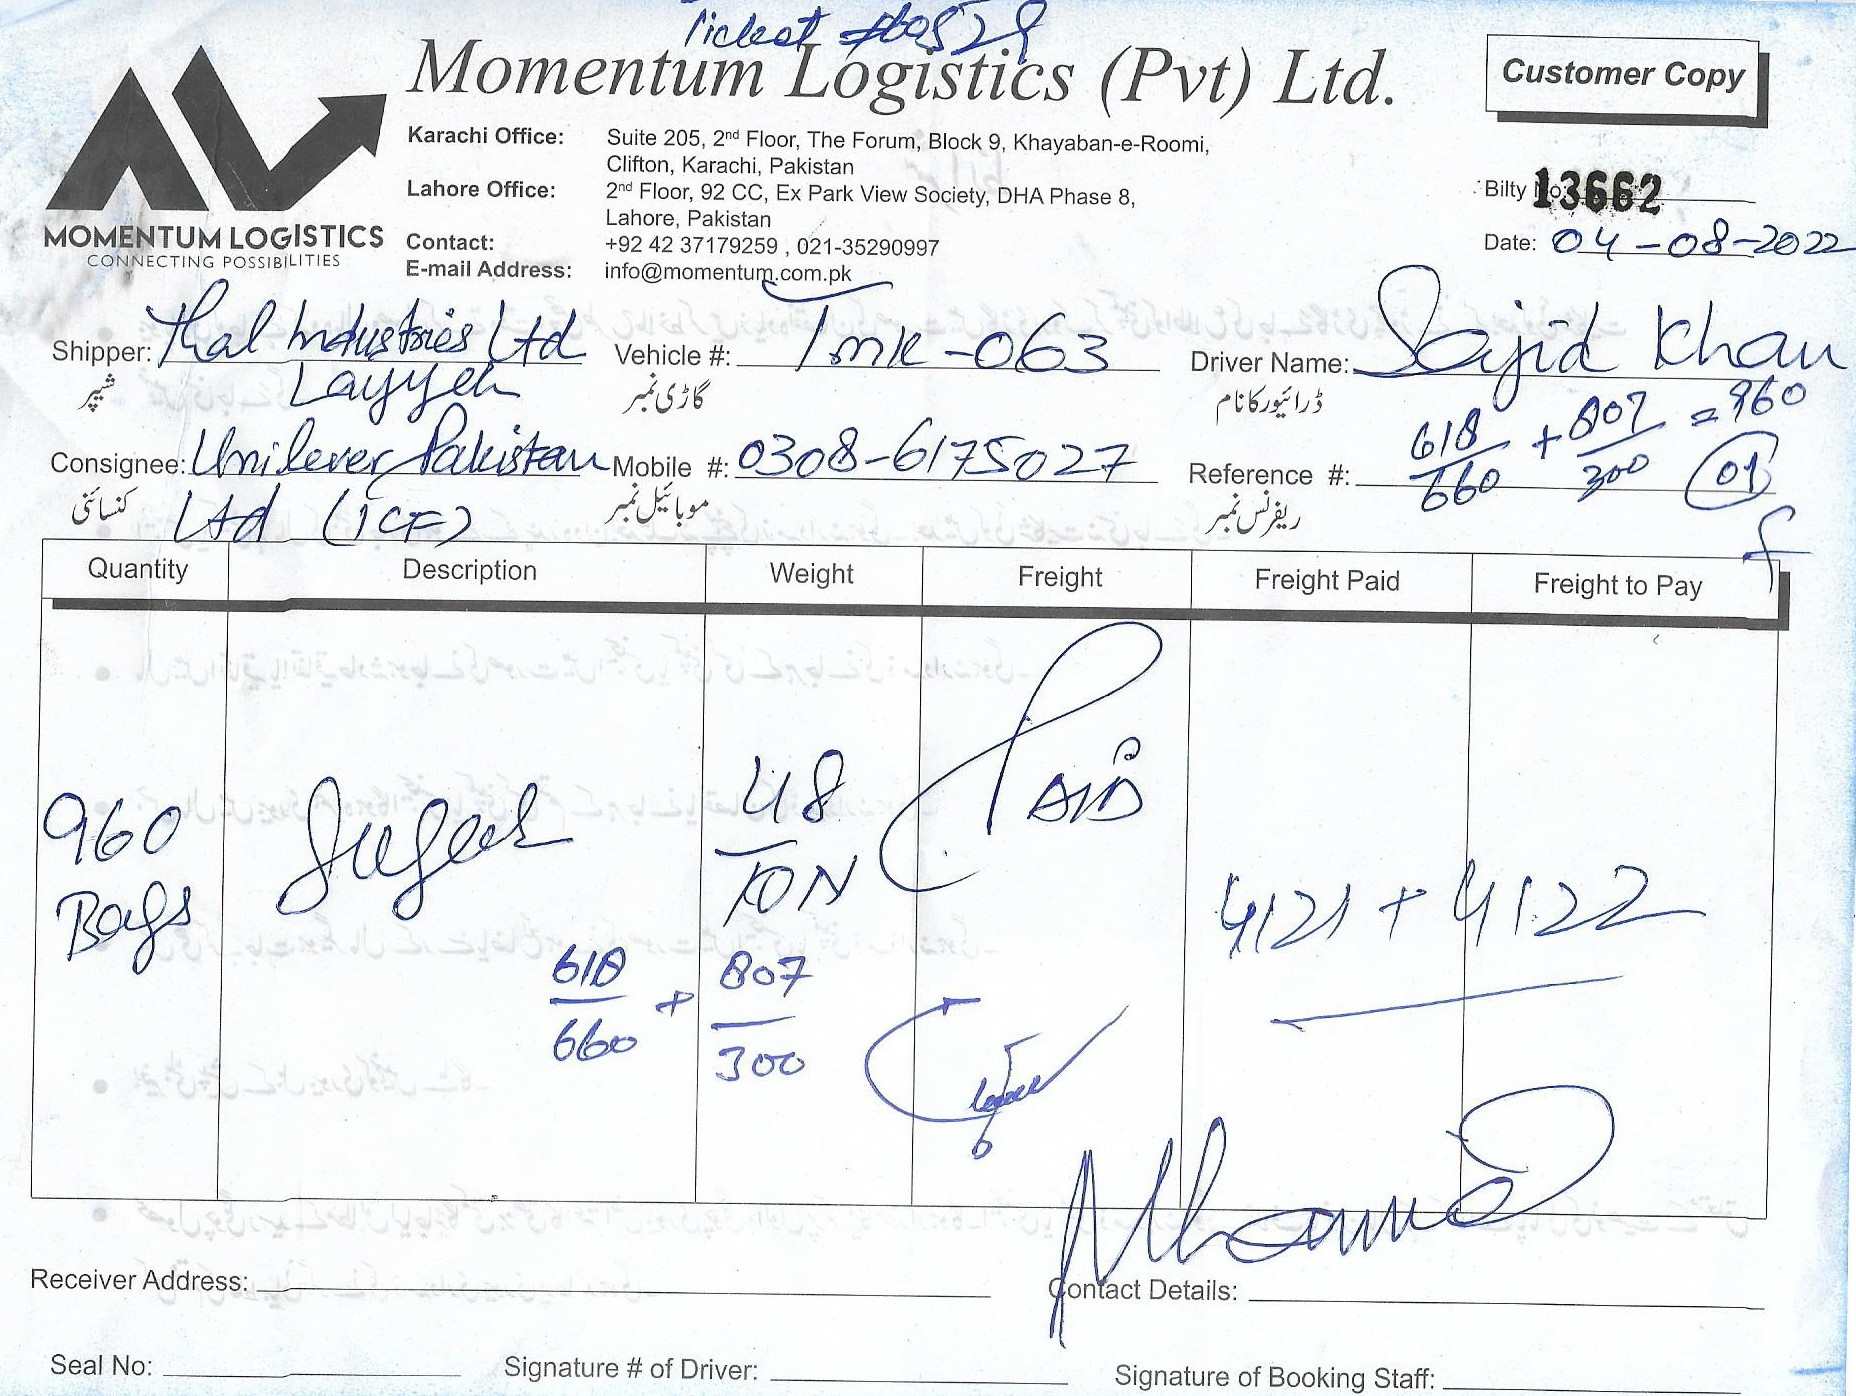 Ticket #00529
Momentum Logistics (Pvt) Ltd.
Customer Copy
MOMENTUM LOGISTICS
CONNECTING POSSIBILITIES
Karachi Office: Suite 205, 2nd Floor, The Forum, Block 9, Khayaban-e-Roomi,
Clifton, Karachi, Pakistan
Lahore Office: 2nd Floor, 92 CC, Ex Park View Society, DHA Phase 8,
Lahore, Pakistan
Contact: +92 42 37179259 , 021-35290997
E-mail Address: info@momentum.com.pk
Bilty No: 13662
Date: 04-08-2022
Shipper: Thal Industries Ltd Vehicle #: Tmk-063 Driver Name: Sajid Khan
Layyah
شیپر گاڑی نمبر ڈرائیور کا نام
Consignee: Unilever Pakistan Mobile #: 0308-6175027 Reference #: 618/660 + 807/300 = 960 01
Ltd (ICF)
کنسائنی موبائیل نمبر ریفرنس نمبر
Quantity Description Weight Freight Freight Paid Freight to Pay
960 Bags Sugar 48 TON PAID 4121 + 4122
618/660 + 807/300
Receiver Address: Contact Details:
Seal No: Signature # of Driver: Signature of Booking Staff: